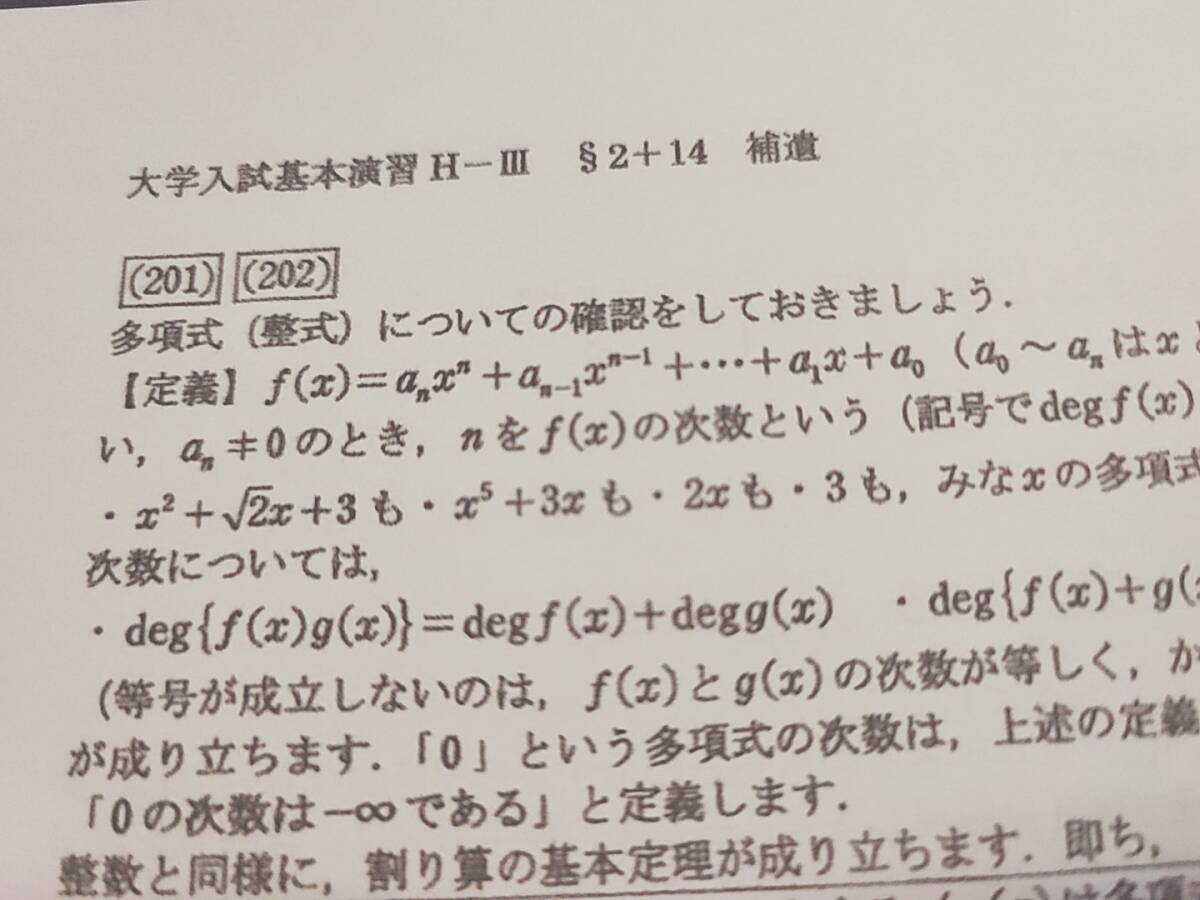 大学入試基本演習 H－Ⅲ　§2＋14　補遺
(201) (202)
多項式（整式）についての確認をしておきましょう．
【定義】f(x)＝aₙxⁿ＋aₙ₋₁xⁿ⁻¹＋⋯＋a₁x＋a₀（a₀～aₙはx
い，aₙ≠0のとき，nをf(x)の次数という（記号でdeg f(x)
・x²＋√2x＋3も・x⁵＋3xも・2xも・3も，みなxの多項式
次数については，
・deg{f(x)g(x)}＝deg f(x)＋deg g(x)　・deg{f(x)＋g(
(等号が成立しないのは，f(x)とg(x)の次数が等しく，か
が成り立ちます．「0」という多項式の次数は，上述の定義
「0の次数は－∞である」と定義します．
整数と同様に，割り算の基本定理が成り立ちます．即ち，
は多項